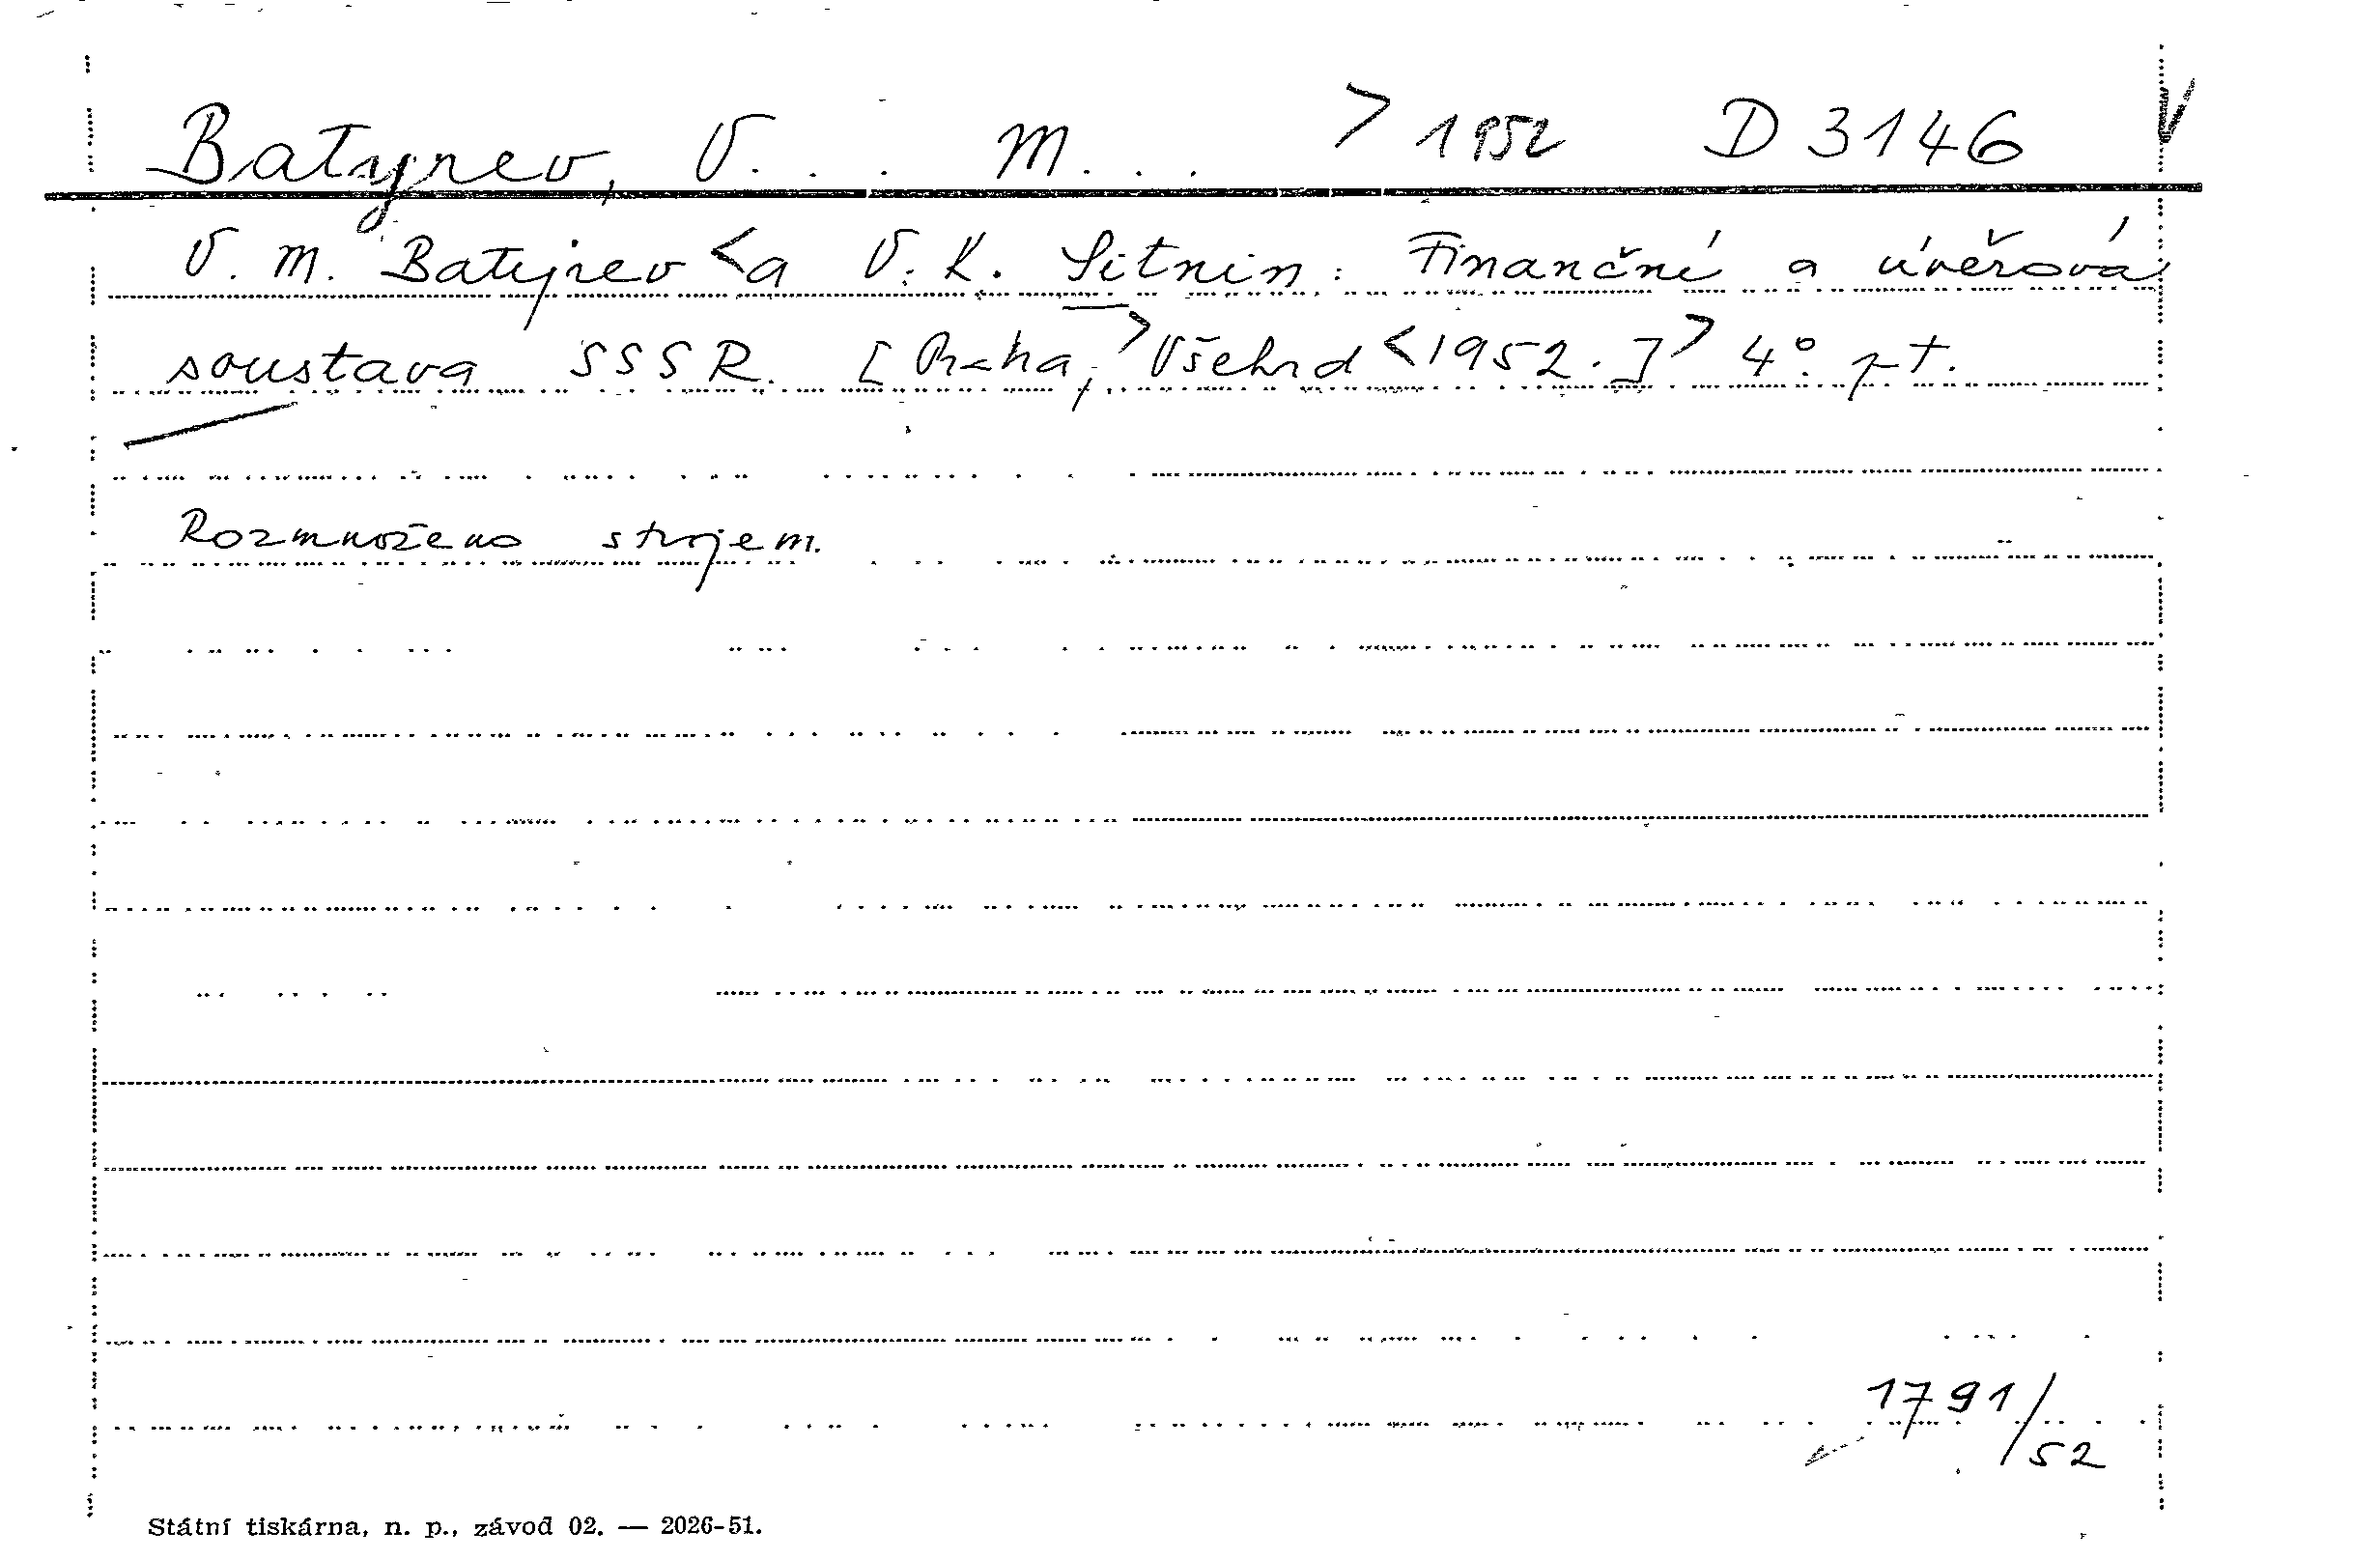 Batyrev, V. . . M. . . > 1952 D 3146 V
V. M. Batyrev < a V. K. Sitnin: Finanční a úvěrová
soustava SSSR. [Praha, > Všehrd < 1952.] > 4° pt.
Rozmnoženo strojem.
1791/52
Státní tiskárna, n. p., závod 02. — 2026-51.